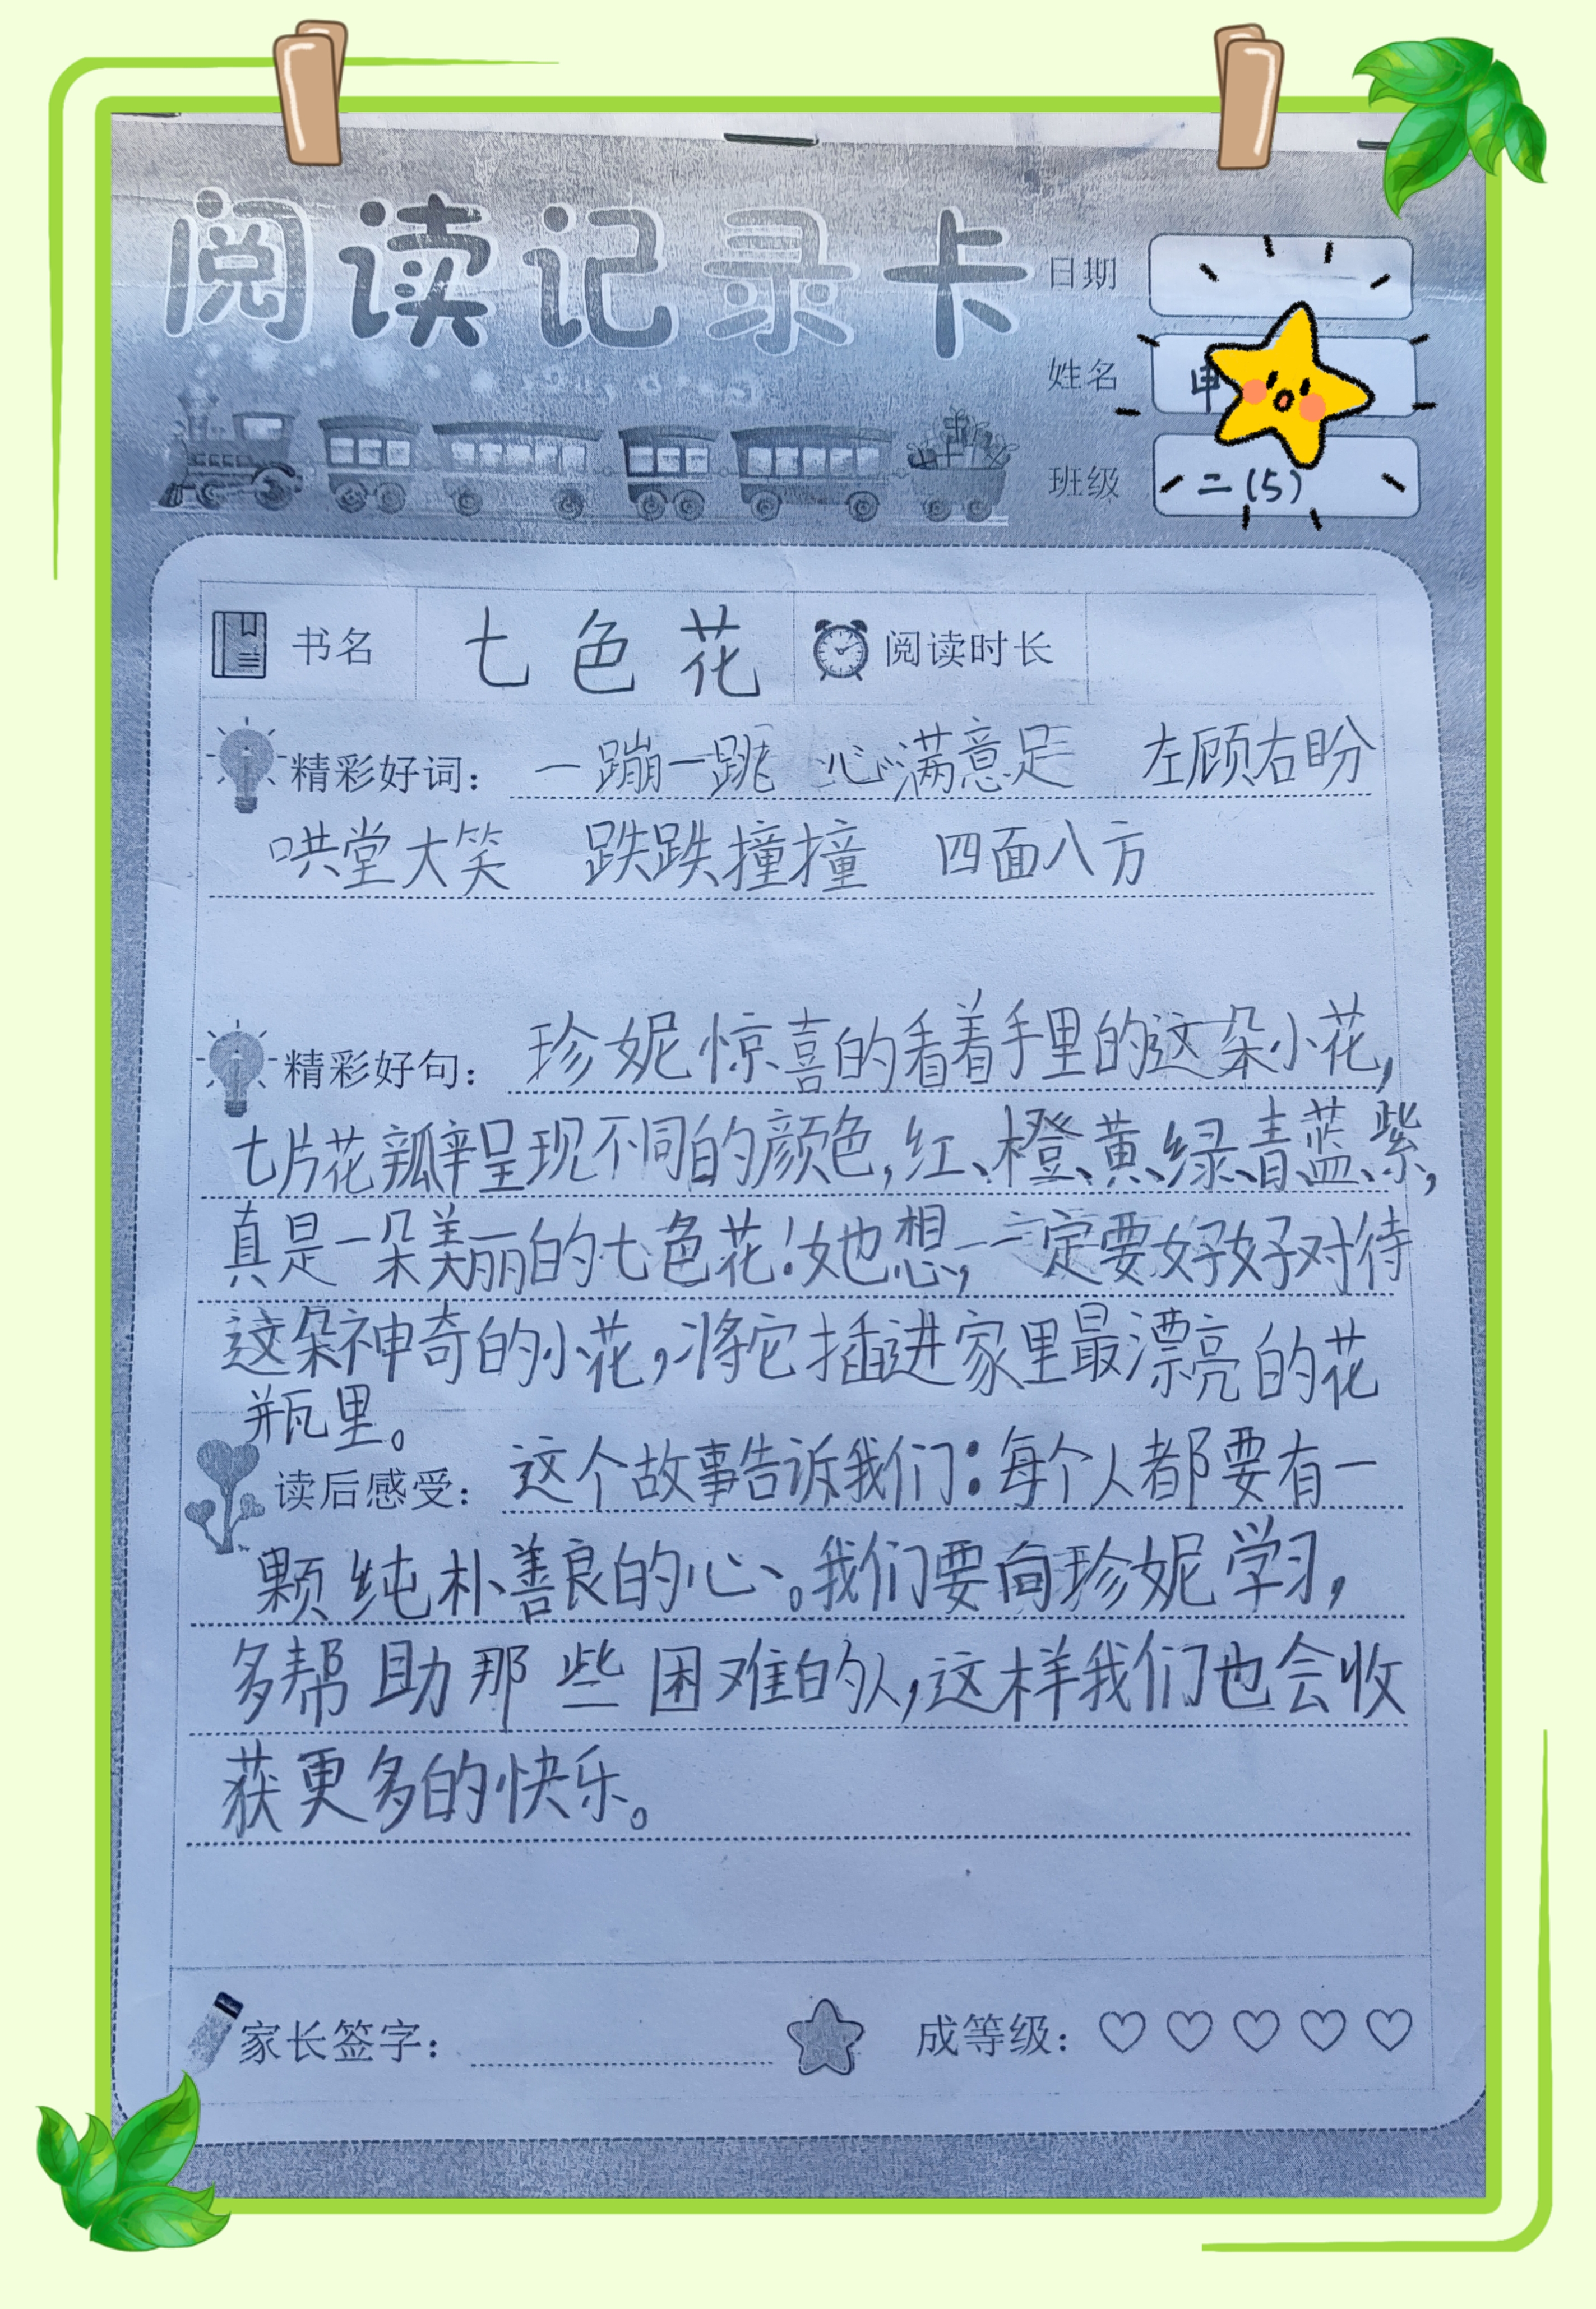 阅读记录卡
日期
姓名
班级 二(5)
书名 七色花 阅读时长
精彩好词： 一蹦一跳 心满意足 左顾右盼
哄堂大笑 跌跌撞撞 四面八方
精彩好句： 珍妮惊喜的看着手里的这朵小花，
七片花瓣呈现不同的颜色，红、橙、黄、绿、青、蓝、紫，
真是一朵美丽的七色花！她想，一定要好好对待
这朵神奇的小花，将它插进家里最漂亮的花
瓶里。
读后感受： 这个故事告诉我们：每个人都要有一
颗纯朴善良的心。我们要向珍妮学习，
多帮助那些困难的人，这样我们也会收
获更多的快乐。
家长签字： 成等级：